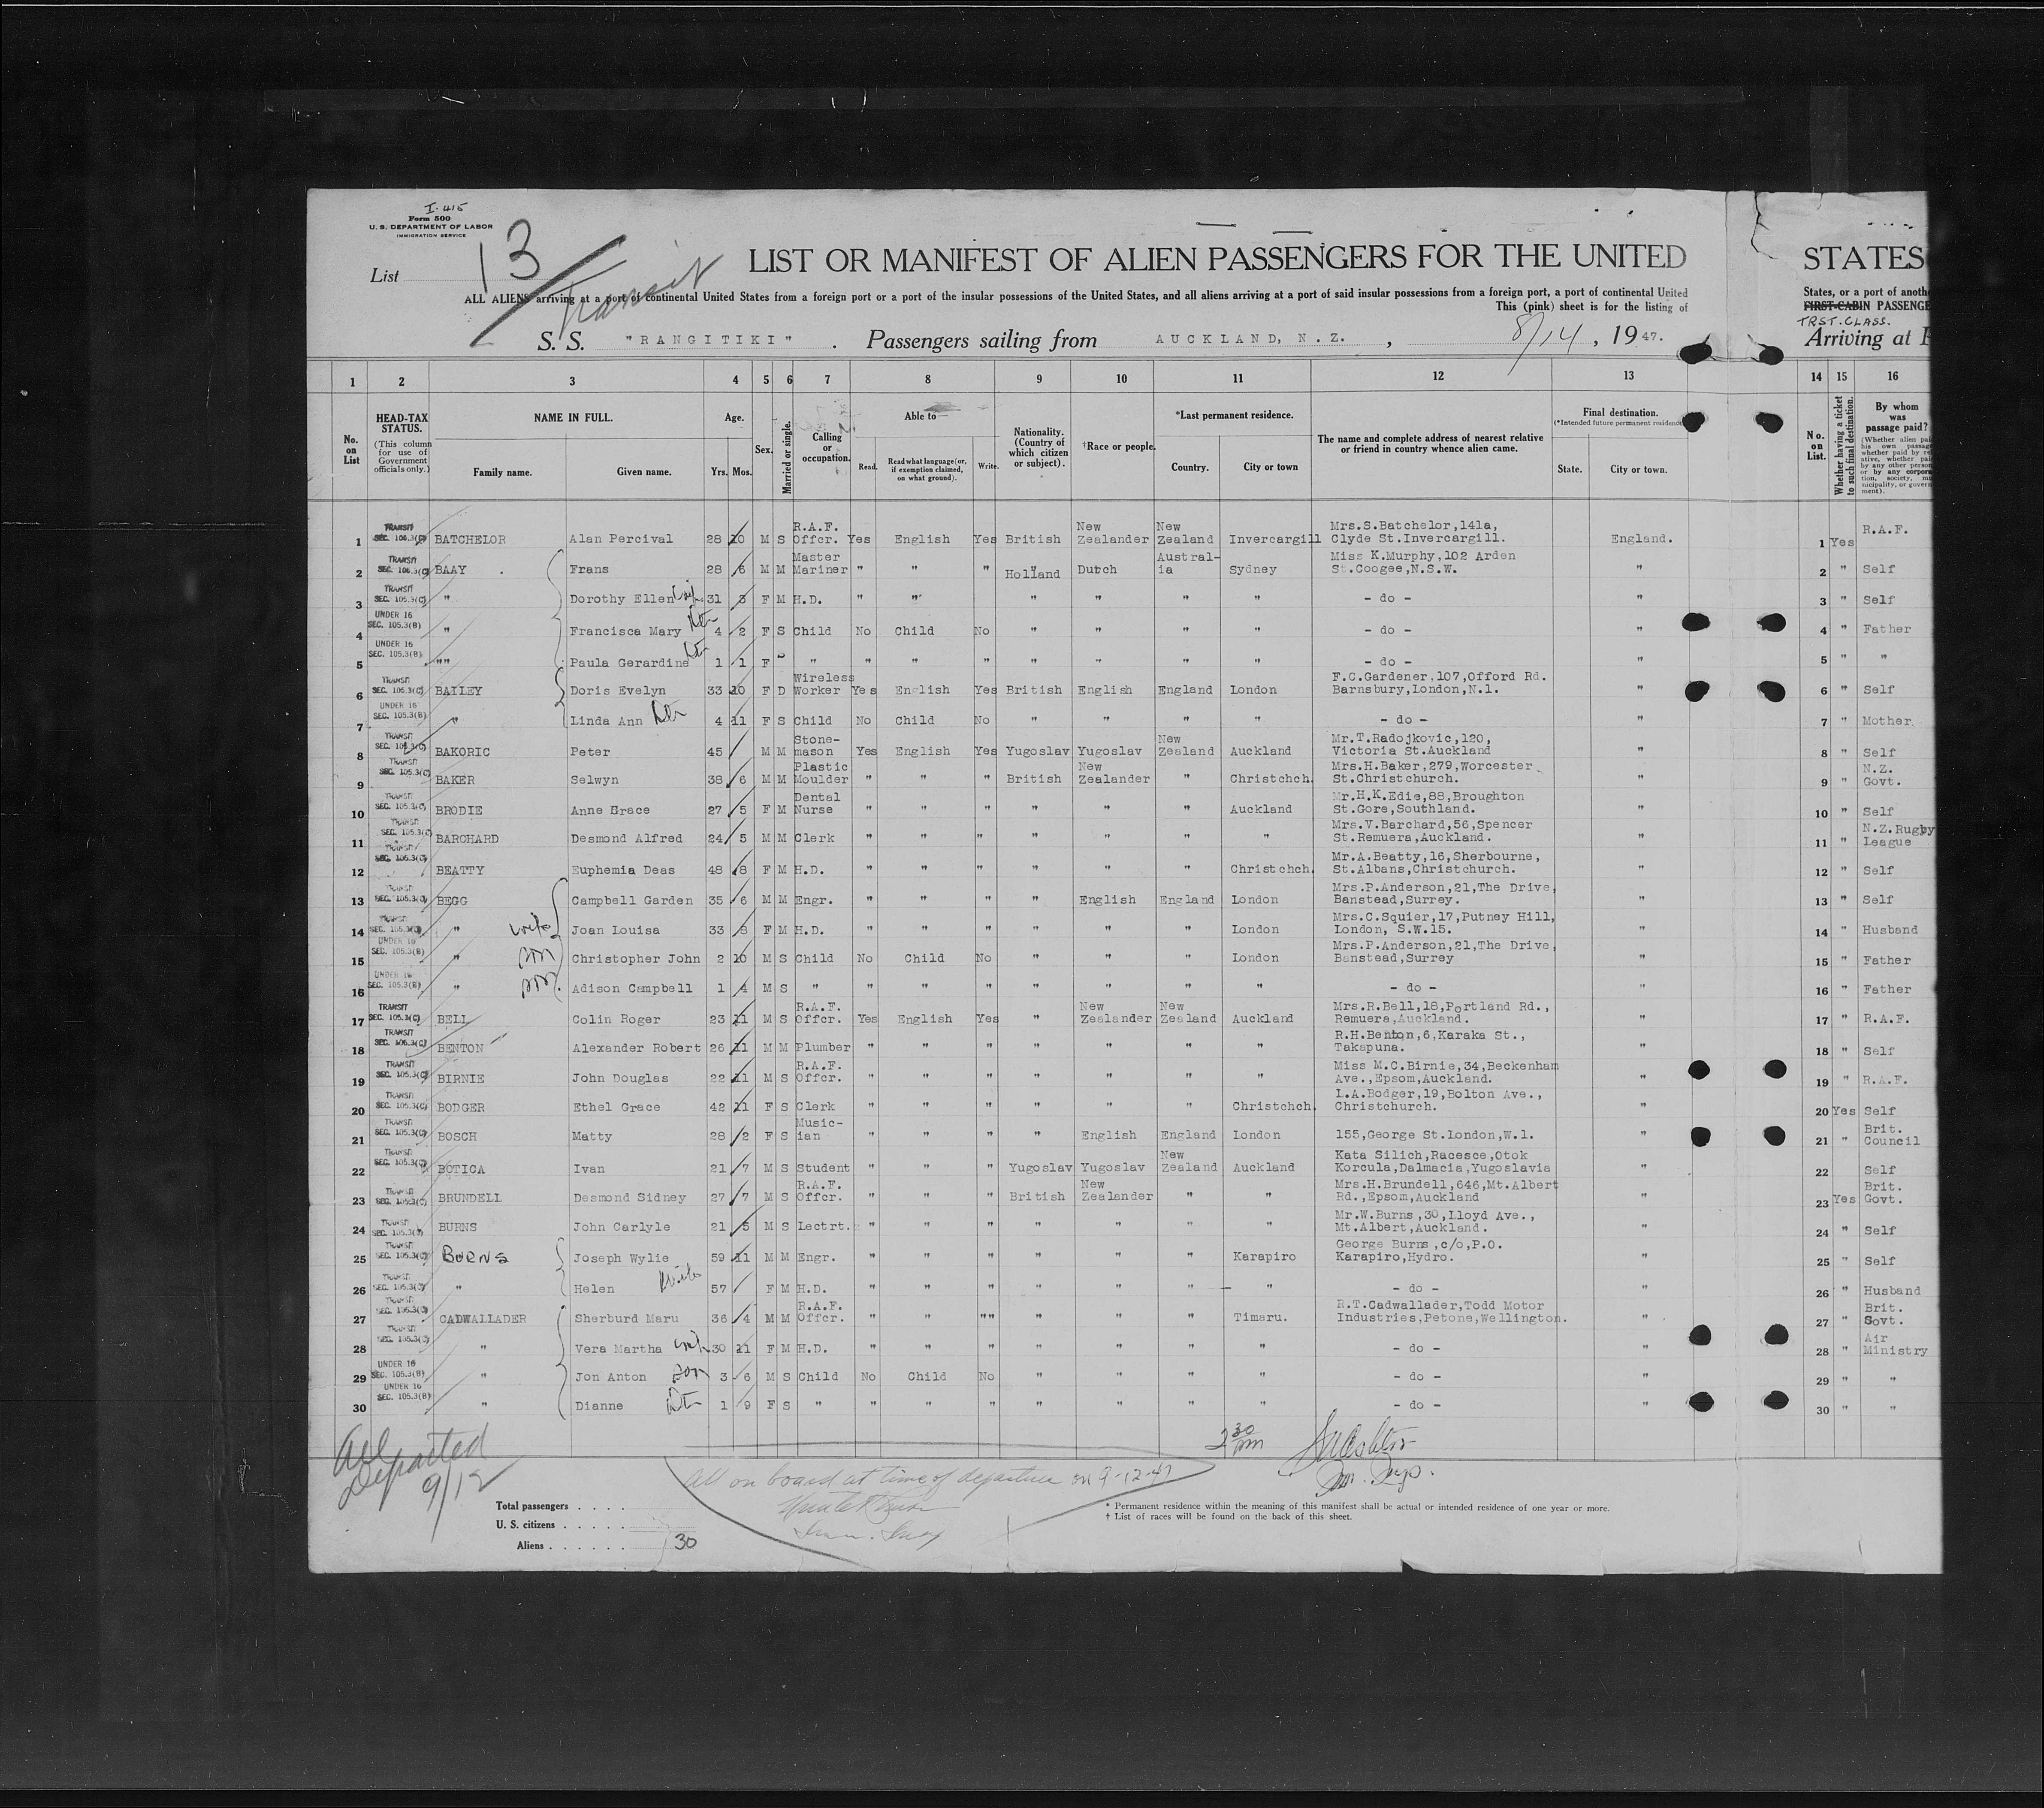 I-415
Form 500
U. S. DEPARTMENT OF LABOR
IMMIGRATION SERVICE
List 13
Transit
LIST OR MANIFEST OF ALIEN PASSENGERS FOR THE UNITED
STATES
ALL ALIENS arriving at a port of continental United States from a foreign port or a port of the insular possessions of the United States, and all aliens arriving at a port of said insular possessions from a foreign port, a port of continental United
States, or a port of anoth
This (pink) sheet is for the listing of
FIRST-CABIN PASSENGE
TRST. CLASS.
S. S. "RANGITIKI". Passengers sailing from AUCKLAND, N.Z., 8/14, 1947.
Arriving at
1 2 3 4 5 6 7 8 9 10 11 12 13 14 15 16
No. on List
HEAD-TAX STATUS. (This column for use of Government officials only.)
NAME IN FULL. Family name. Given name.
Age. Yrs. Mos.
Sex.
Married or single.
Calling or occupation.
Able to— Read. Read what language (or, if exemption claimed, on what ground). Write.
Nationality. (Country of which citizen or subject).
†Race or people.
*Last permanent residence. Country. City or town
The name and complete address of nearest relative or friend in country whence alien came.
Final destination. (*Intended future permanent residence) State. City or town.
No. on List.
Whether having a ticket to such final destination.
By whom was passage paid?
1 TRANSIT SEC. 105.3(C) BATCHELOR Alan Percival 28 10 M S R.A.F. Offcr. Yes English Yes British New Zealander New Zealand Invercargill Mrs.S.Batchelor,141a, Clyde St.Invercargill. England. 1 Yes R.A.F.
2 TRANSIT SEC. 105.3(C) BAAY Frans 28 6 M M Master Mariner " " " Holland Dutch Australia Sydney Miss K.Murphy,102 Arden St.Coogee,N.S.W. " 2 " Self
3 TRANSIT SEC. 105.3(C) " Dorothy Ellen wife 31 3 F M H.D. " " " " " " - do - " 3 " Self
4 UNDER 16 SEC. 105.3(B) " Francisca Mary Dtr 4 2 F S Child No Child No " " " " - do - " 4 " Father
5 UNDER 16 SEC. 105.3(B) "" Paula Gerardine Dtr 1 1 F " " " " " " " " - do - " 5 " "
6 TRANSIT SEC. 105.3(C) BAILEY Doris Evelyn 33 10 F D Wireless Worker Yes English Yes British English England London F.C.Gardener,107,Offord Rd. Barnsbury,London,N.1. " 6 " Self
7 UNDER 16 SEC. 105.3(B) " Linda Ann Dtr 4 11 F S Child No Child No " " " " - do - " 7 " Mother
8 TRANSIT SEC. 105.3(C) BAKORIC Peter 45 M M Stone-mason Yes English Yes Yugoslav Yugoslav New Zealand Auckland Mr.T.Radojkovic,120, Victoria St.Auckland " 8 " Self
9 TRANSIT SEC. 105.3(C) BAKER Selwyn 38 6 M M Plastic Moulder " " " British New Zealander " Christchch. Mrs.H.Baker,279,Worcester St.Christchurch. " 9 " N.Z. Govt.
10 TRANSIT SEC. 105.3(C) BRODIE Anne Grace 27 5 F M Dental Nurse " " " " " " Auckland Mr.H.K.Edie,88,Broughton St.Gore,Southland. " 10 " Self
11 TRANSIT SEC. 105.3(C) BARCHARD Desmond Alfred 24 5 M M Clerk " " " " " " " Mrs.V.Barchard,56,Spencer St.Remuera,Auckland. " 11 " N.Z.Rugby League
12 TRANSIT SEC. 105.3(C) BEATTY Euphemia Deas 48 8 F M H.D. " " " " " " Christchch. Mr.A.Beatty,16,Sherbourne, St.Albans,Christchurch. " 12 " Self
13 TRANSIT SEC. 105.3(C) BEGG Campbell Garden 35 6 M M Engr. " " " " English England London Mrs.P.Anderson,21,The Drive, Banstead,Surrey. " 13 " Self
14 TRANSIT SEC. 105.3(C) " wife Joan Louisa 33 8 F M H.D. " " " " " " London Mrs.C.Squier,17,Putney Hill, London, S.W.15. " 14 " Husband
15 UNDER 16 SEC. 105.3(B) " son Christopher John 2 10 M S Child No Child No " " " London Mrs.P.Anderson,21,The Drive, Banstead,Surrey " 15 " Father
16 UNDER 16 SEC. 105.3(B) " son Adison Campbell 1 4 M S " " " " " " " " - do - " 16 " Father
17 TRANSIT SEC. 105.3(C) BELL Colin Roger 23 11 M S R.A.F. Offcr. Yes English Yes " New Zealander New Zealand Auckland Mrs.R.Bell,18,Portland Rd., Remuera,Auckland. " 17 " R.A.F.
18 TRANSIT SEC. 105.3(C) BENTON Alexander Robert 26 11 M M Plumber " " " " " " " R.H.Benton,6,Karaka St., Takapuna. " 18 " Self
19 TRANSIT SEC. 105.3(C) BIRNIE John Douglas 22 11 M S R.A.F. Offcr. " " " " " " " Miss M.C.Birnie,34,Beckenham Ave.,Epsom,Auckland. " 19 " R.A.F.
20 TRANSIT SEC. 105.3(C) BODGER Ethel Grace 42 11 F S Clerk " " " " " " Christchch. L.A.Bodger,19,Bolton Ave., Christchurch. " 20 Yes Self
21 TRANSIT SEC. 105.3(C) BOSCH Matty 28 2 F S Music-ian " " " " English England London 155,George St.London,W.1. " 21 " Brit. Council
22 TRANSIT SEC. 105.3(C) BOTICA Ivan 21 7 M S Student " " " Yugoslav Yugoslav New Zealand Auckland Kata Silich,Racesce,Otok Korcula,Dalmacia,Yugoslavia " 22 Self
23 TRANSIT SEC. 105.3(C) BRUNDELL Desmond Sidney 27 7 M S R.A.F. Offcr. " " " British New Zealander " " Mrs.H.Brundell,646,Mt.Albert Rd.,Epsom,Auckland " 23 Yes Brit. Govt.
24 TRANSIT SEC. 105.3(C) BURNS John Carlyle 21 5 M S Lectrt. " " " " " " " Mr.W.Burns,30,Lloyd Ave., Mt.Albert,Auckland. " 24 " Self
25 TRANSIT SEC. 105.3(C) BURNS Joseph Wylie 59 11 M M Engr. " " " " " " Karapiro George Burns,c/o,P.O. Karapiro,Hydro. " 25 " Self
26 TRANSIT SEC. 105.3(C) " Helen Wife 57 F M H.D. " " " " " " " - do - " 26 " Husband
27 TRANSIT SEC. 105.3(C) CADWALLADER Sherburd Maru 36 4 M M R.A.F. Offcr. " " "" " " " Timaru. R.T.Cadwallader,Todd Motor Industries,Petone,Wellington. " 27 " Brit. Govt.
28 TRANSIT SEC. 105.3(C) " Vera Martha wife 30 11 F M H.D. " " " " " " " - do - " 28 " Air Ministry
29 UNDER 16 SEC. 105.3(B) " Jon Anton son 3 6 M S Child No Child No " " " " - do - " 29 " "
30 UNDER 16 SEC. 105.3(B) " Dianne Dtr 1 9 F S " " " " " " " " - do - " 30 " "
All Departed 9/12
2 30 pm
All on board at time of departure on 9-12-47
Total passengers
U. S. citizens
Aliens 30
* Permanent residence within the meaning of this manifest shall be actual or intended residence of one year or more.
† List of races will be found on the back of this sheet.